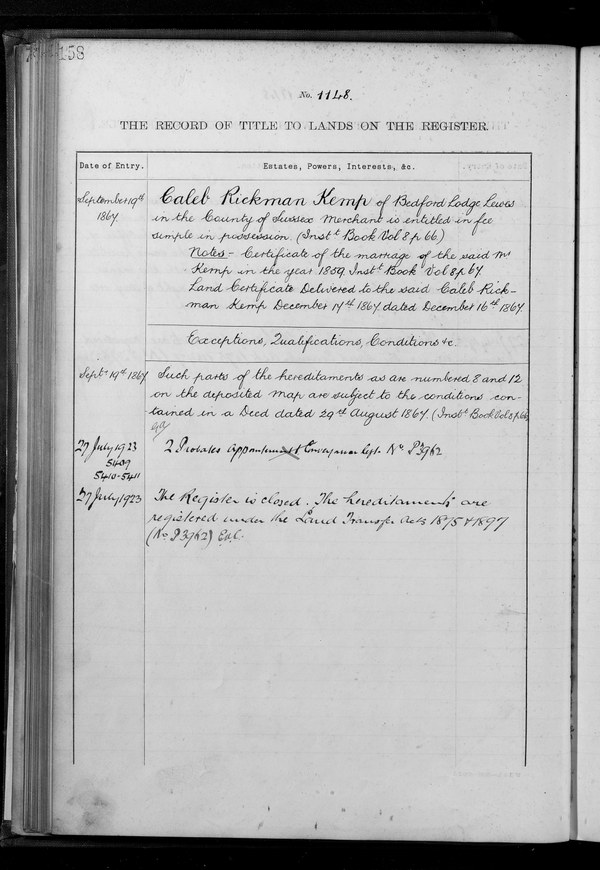 158
No. 1148.
THE RECORD OF TITLE TO LANDS ON THE REGISTER.
Date of Entry.
Estates, Powers, Interests, &c.
September 19th
1867
Caleb Rickman Kemp of Bedford Lodge Lewes
in the County of Sussex Merchant is entitled in fee
simple in possession. (Instt Book Vol 8 p 66.)
Notes - Certificate of the marriage of the said Mr
Kemp in the year 1859 Instt Book Vol 8 p 67
Land Certificate Delivered to the said Caleb Rick-
man Kemp December 17th 1867 dated December 16th 1867.
Exceptions, Qualifications, Conditions &c.
Septr 19th 1867
Such parts of the hereditaments as are numbered 8 and 12
on the deposited Map are subject to the conditions con-
tained in a Deed dated 29th August 1867. (Instt Book Vol 8 p 66
27 July 1923
5409
5410-5411
2 Probates Appointment & Conveyance Cert. No P3962
27 July 1923
The Register is closed. The hereditaments are
registered under the Land Transfer Acts 1875 & 1897
(No P3962)